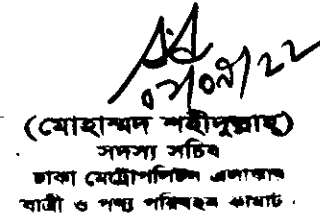 ০১/০৯/২২
(মোহাম্মদ শহীদুল্লাহ্)
সদস্য সচিব
ঢাকা মেট্রোপলিটন এলাকার
যাত্রী ও পণ্য পরিবহন কমিটি